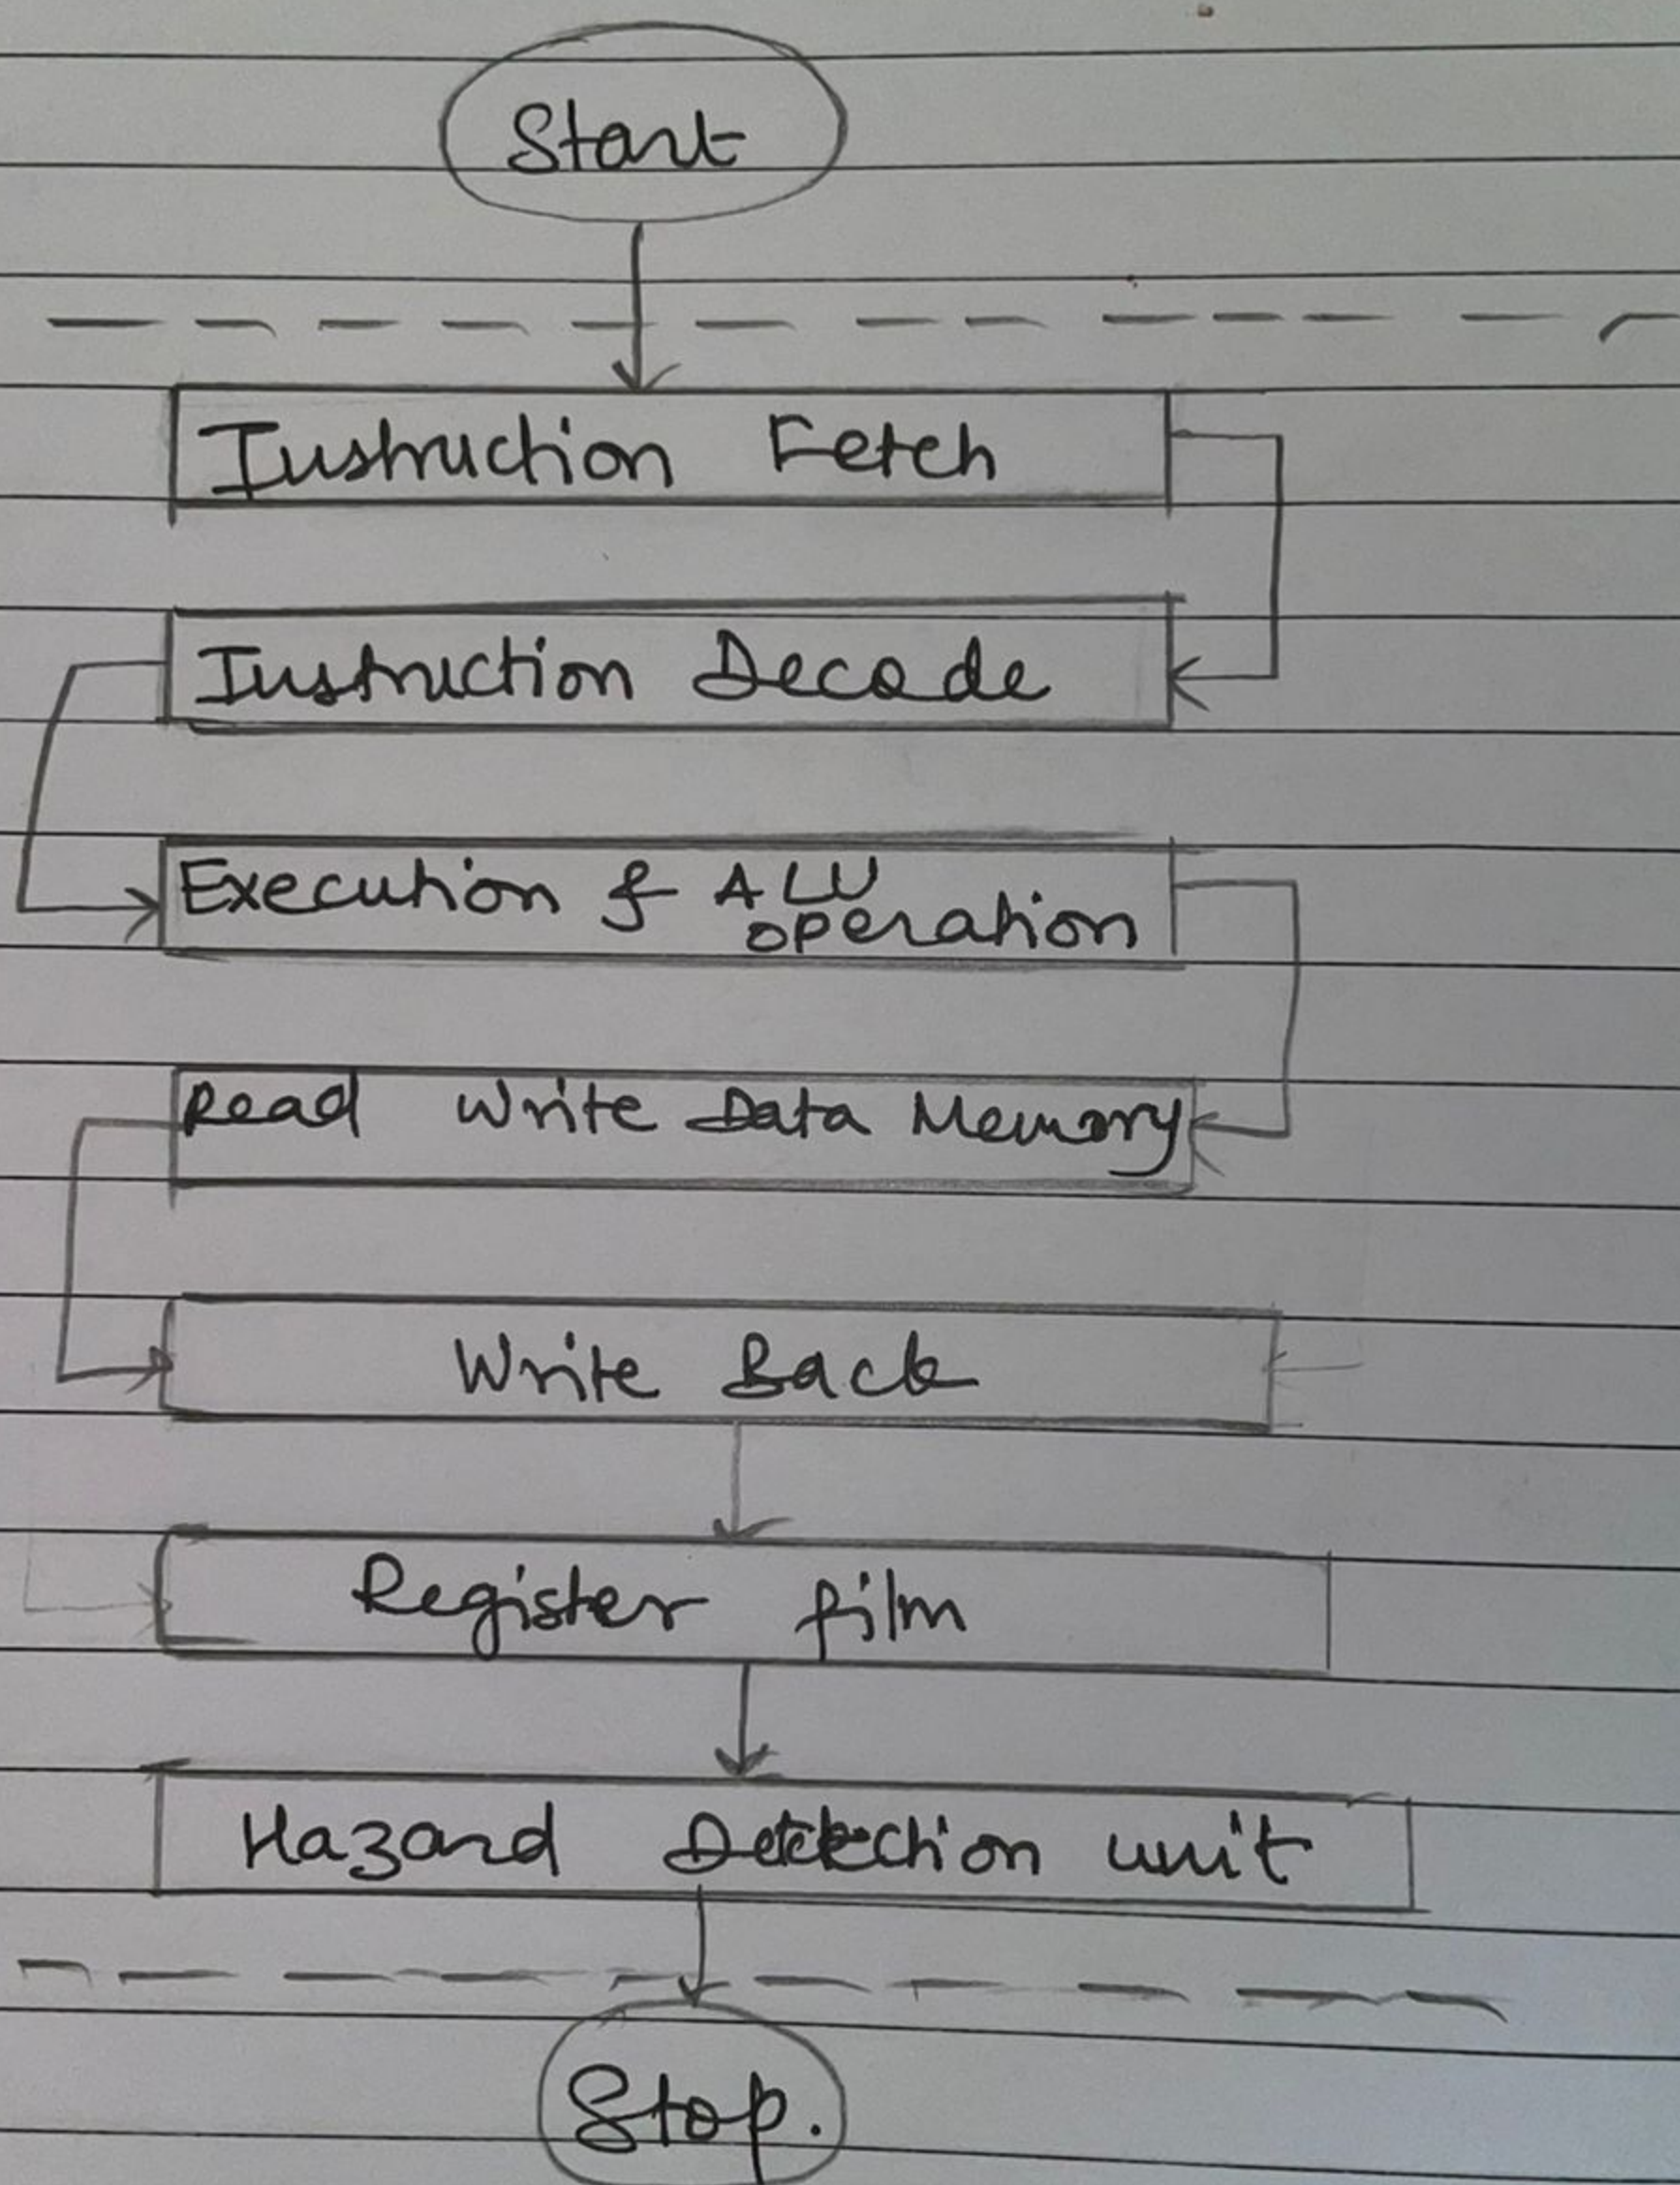 Start
Instruction Fetch
Instruction Decode
Execution & ALU
operation
Read Write Data Memory
Write Back
Register film
Hazard Detection unit
Stop.